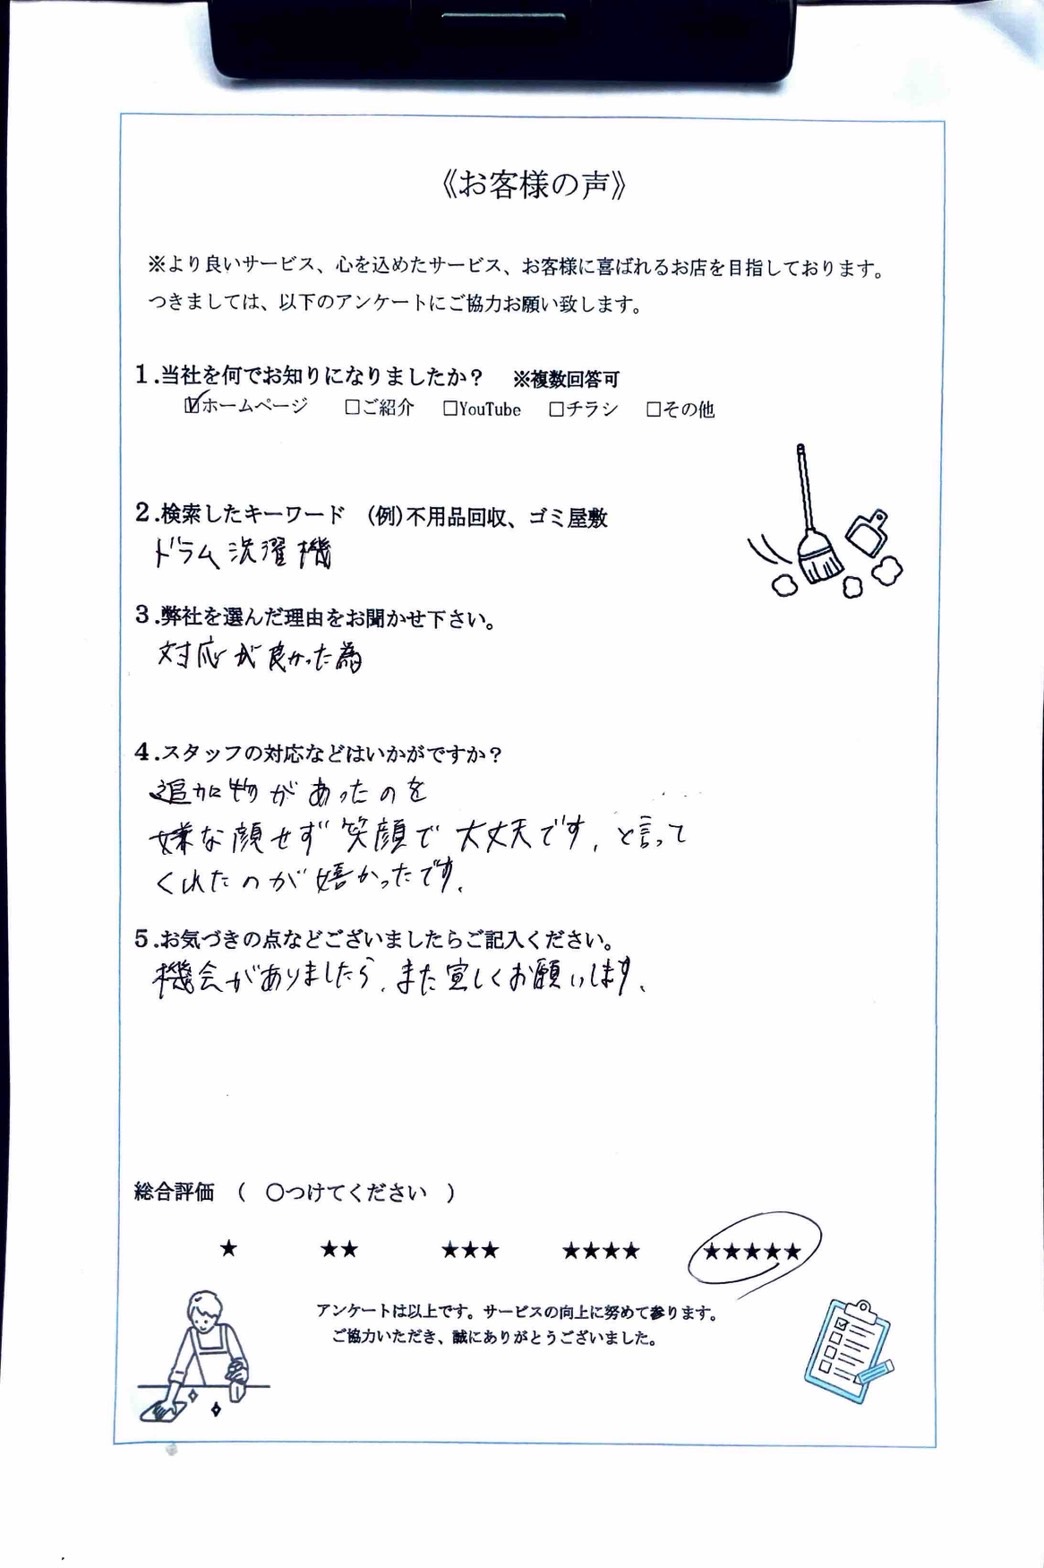 《お客様の声》
※より良いサービス、心を込めたサービス、お客様に喜ばれるお店を目指しております。
つきましては、以下のアンケートにご協力お願い致します。
1.当社を何でお知りになりましたか？　※複数回答可
☑ホームページ　□ご紹介　□YouTube　□チラシ　□その他
2.検索したキーワード　(例)不用品回収、ゴミ屋敷
ドラム洗濯機
3.弊社を選んだ理由をお聞かせ下さい。
対応が良かった為
4.スタッフの対応などはいかがですか？
追加物があったのを
嫌な顔せず笑顔で大丈夫です、と言って
くれたのが嬉かったです。
5.お気づきの点などございましたらご記入ください。
機会がありましたら、また宜しくお願いします、
総合評価　（　〇つけてください　）
★　★★　★★★　★★★★　★★★★★
アンケートは以上です。サービスの向上に努めて参ります。
ご協力いただき、誠にありがとうございました。